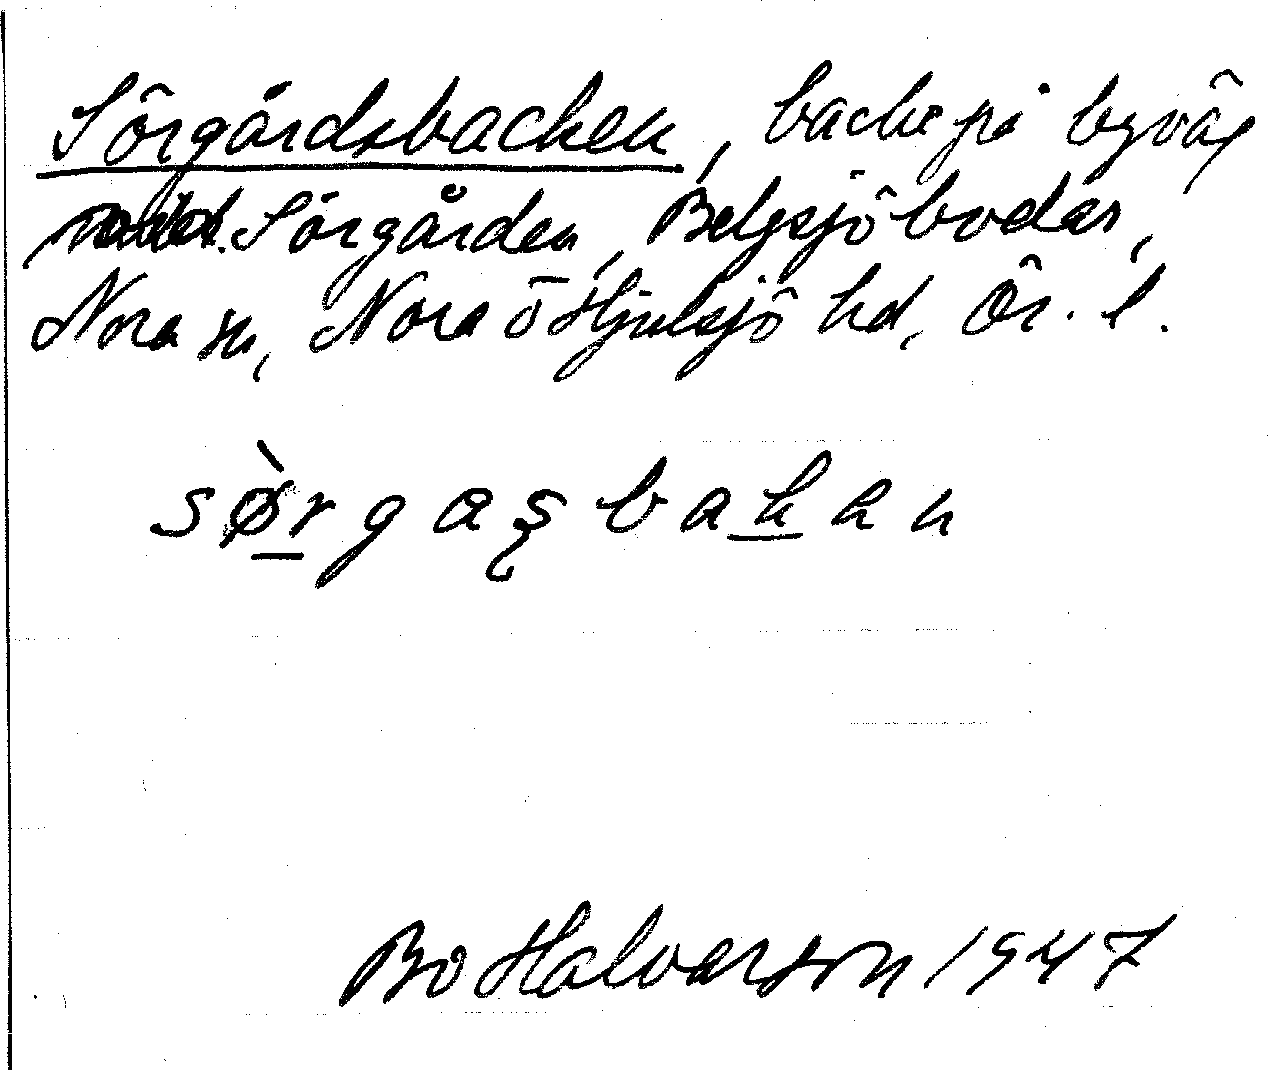 Sörgårdsbacken, backe på byväg
Sörgården, Belgsjöbodar,
Nora sn, Nora o Hjulsjö hd, Ör. l.
sø̀rgaʂbakan
Bo Halvarson 1947